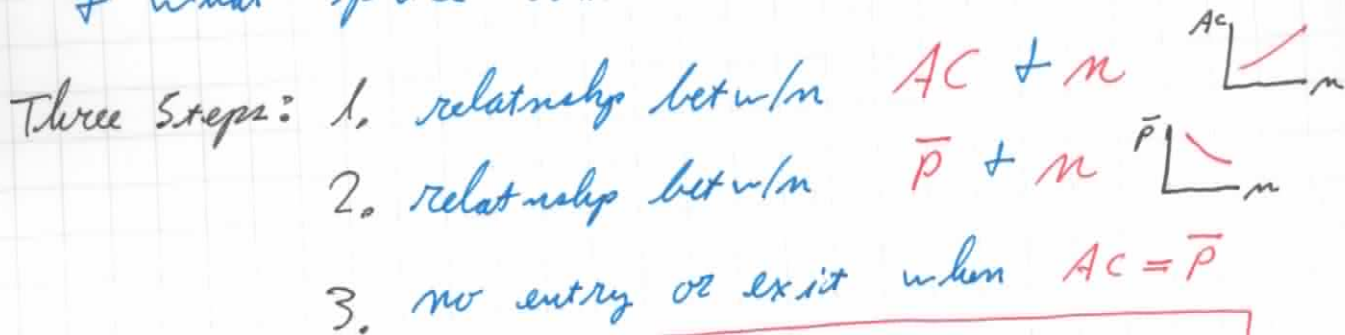 Three Steps: 1. relatnshp betw/n AC + n AC n
2. relatnshp betw/n P̄ + n P̄ n
3. no entry or exit when AC = P̄